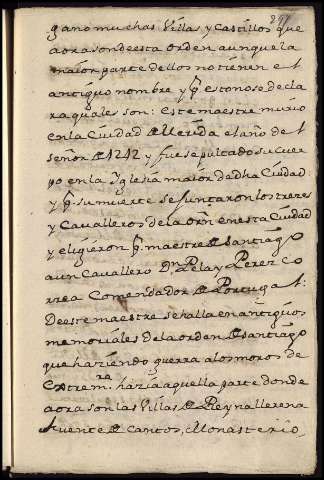 gano muchas Villas y Castillos que
aora son de esta orden aunque la
maior parte dellos no tienen el
antiguo nombre y pr esto no se decla
ra quales son: este maestre murio
en la Ciudad de Merida el año del
señor de 1242 y fue sepultado su cuer
po en la Yglesia maior de dha Ciudad
y pr su muerte se juntaron los treces
y Cavalleros de la orn en esta Ciudad
y eligieron pr maestre de Santiago
a un Cavallero Dn Pelay Perez Co
rrea Comendador de Portugal:
De este maestre se halla en antiguos
memoriales de la orden de Santiago
que haziendo guerra a los moros de
Extremra hazia aquella parte donde
aora son las Villas de Reyna llerena
fuente de Cantos, Monasterio,